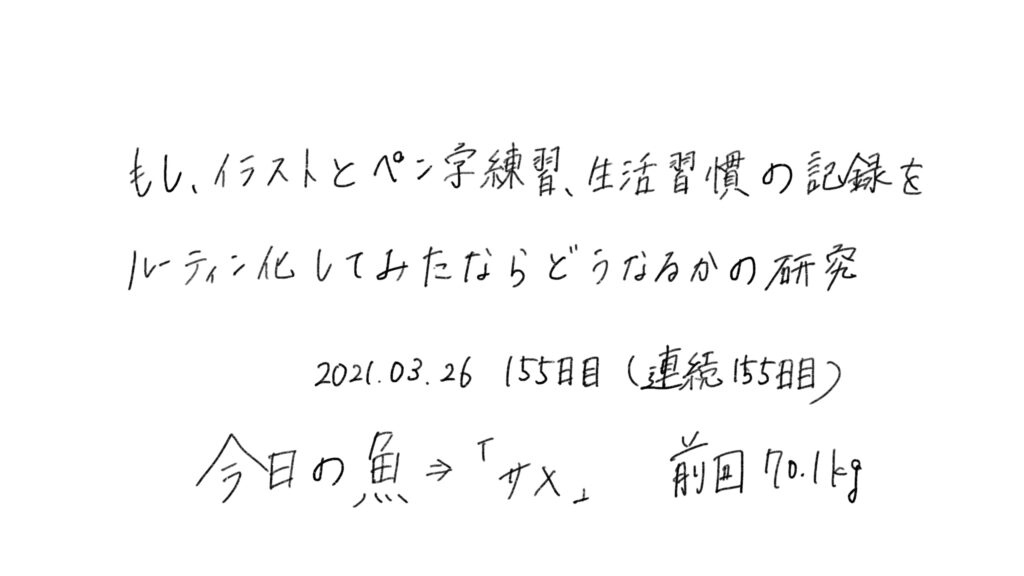 もし、イラストとペン字練習、生活習慣の記録を
ルーティン化してみたならどうなるかの研究
2021.03.26 155日目(連続155日目)
今日の魚⇒「サメ」 前回70.1kg